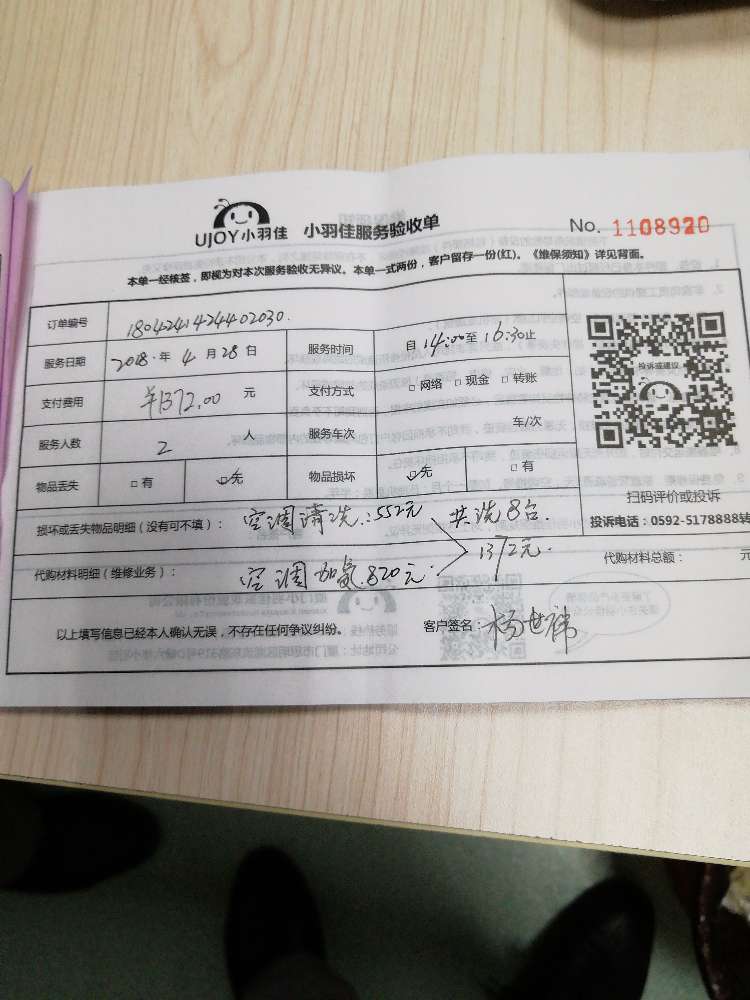 UJOY小羽佳 小羽佳服务验收单 No. 1108920
本单一经核签，即视为对本次服务验收无异议。本单一式两份，客户留存一份(红)。《维保须知》详见背面。
订单编号 1804241424402030.
服务日期 2018年 4 月 28 日 服务时间 自 14:00至 16:30止
支付费用 ¥1372.00 元 支付方式 □ 网络 □ 现金 □ 转账
服务人数 2 人 服务车次 车/次
物品丢失 □ 有 □无 物品损坏 □无 □ 有
投诉或建议
扫码评价或投诉
投诉电话：0592-5178888转
损坏或丢失物品明细（没有可不填）： 空调清洗：552元 共洗8台
1372元.
代购材料明细（维修业务）： 空调加氟.820元. 代购材料总额： 元
以上填写信息已经本人确认无误，不存在任何争议纠纷。 客户签名：杨世祎